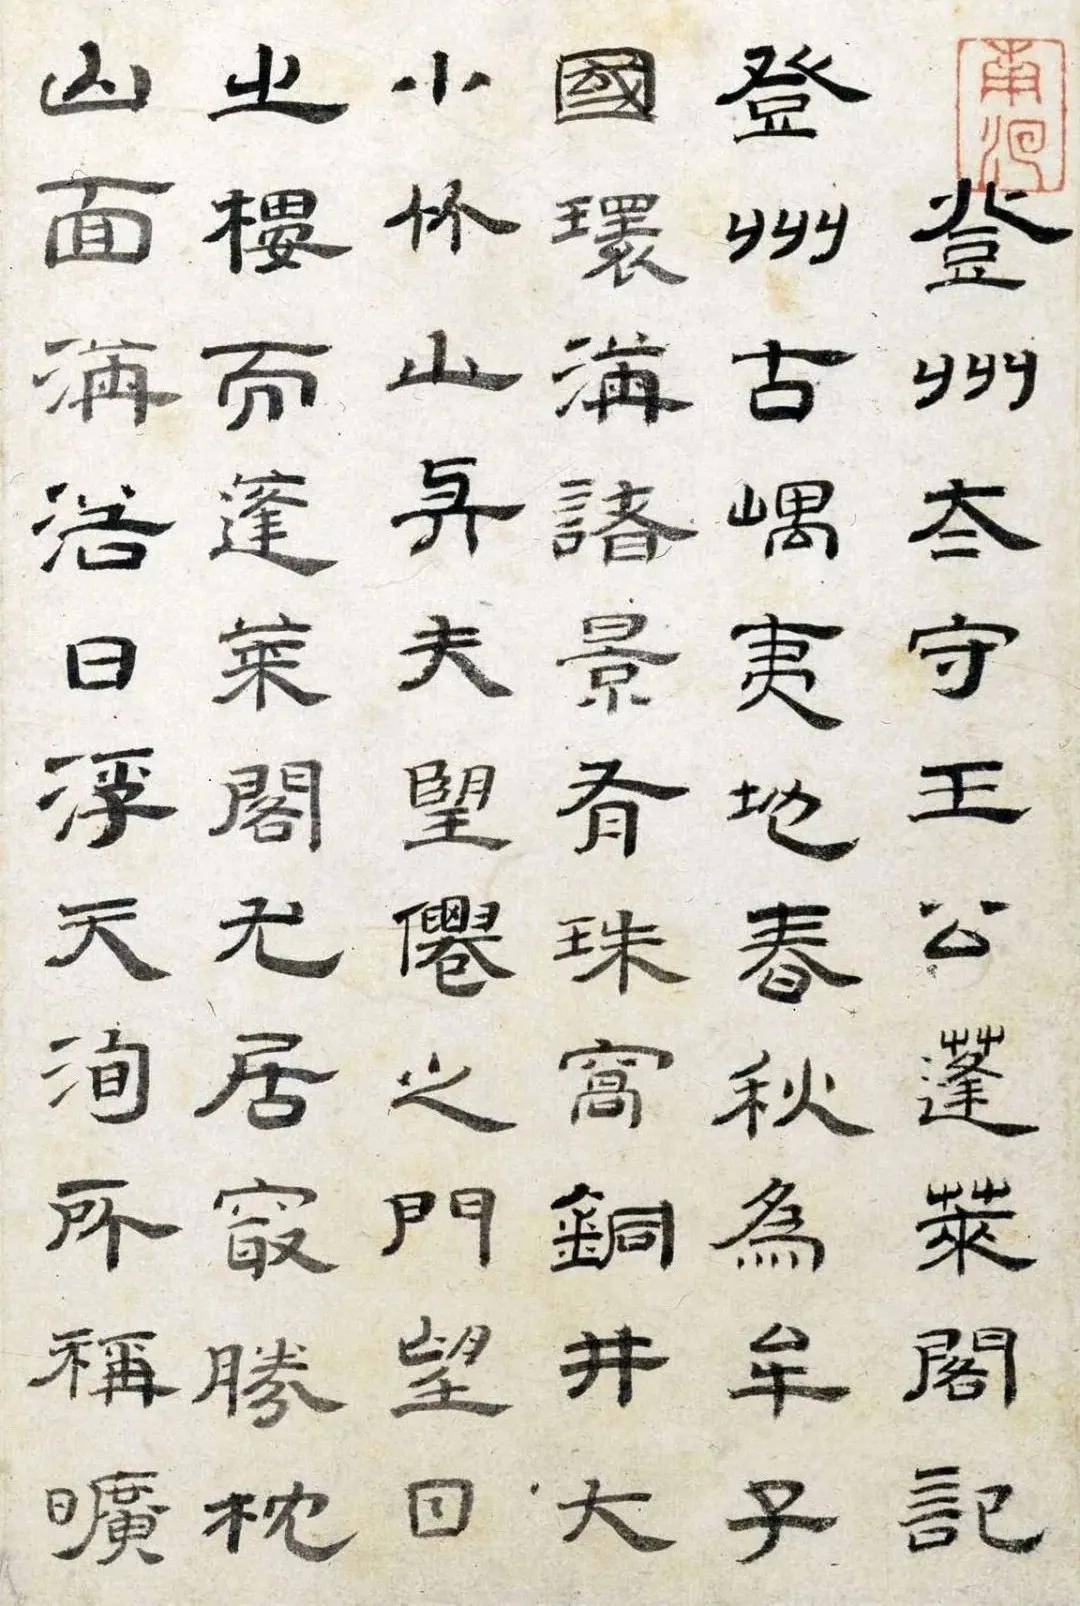 登州夳守王公蓬萊閣記
登州古嵎夷地春秋為牟子
國環海諸景有珠窩銅井大
小竹山與夫望僊之門望日
之樓而蓬萊閣尤居㝡勝枕
山面海浴日浮天洵所稱曠